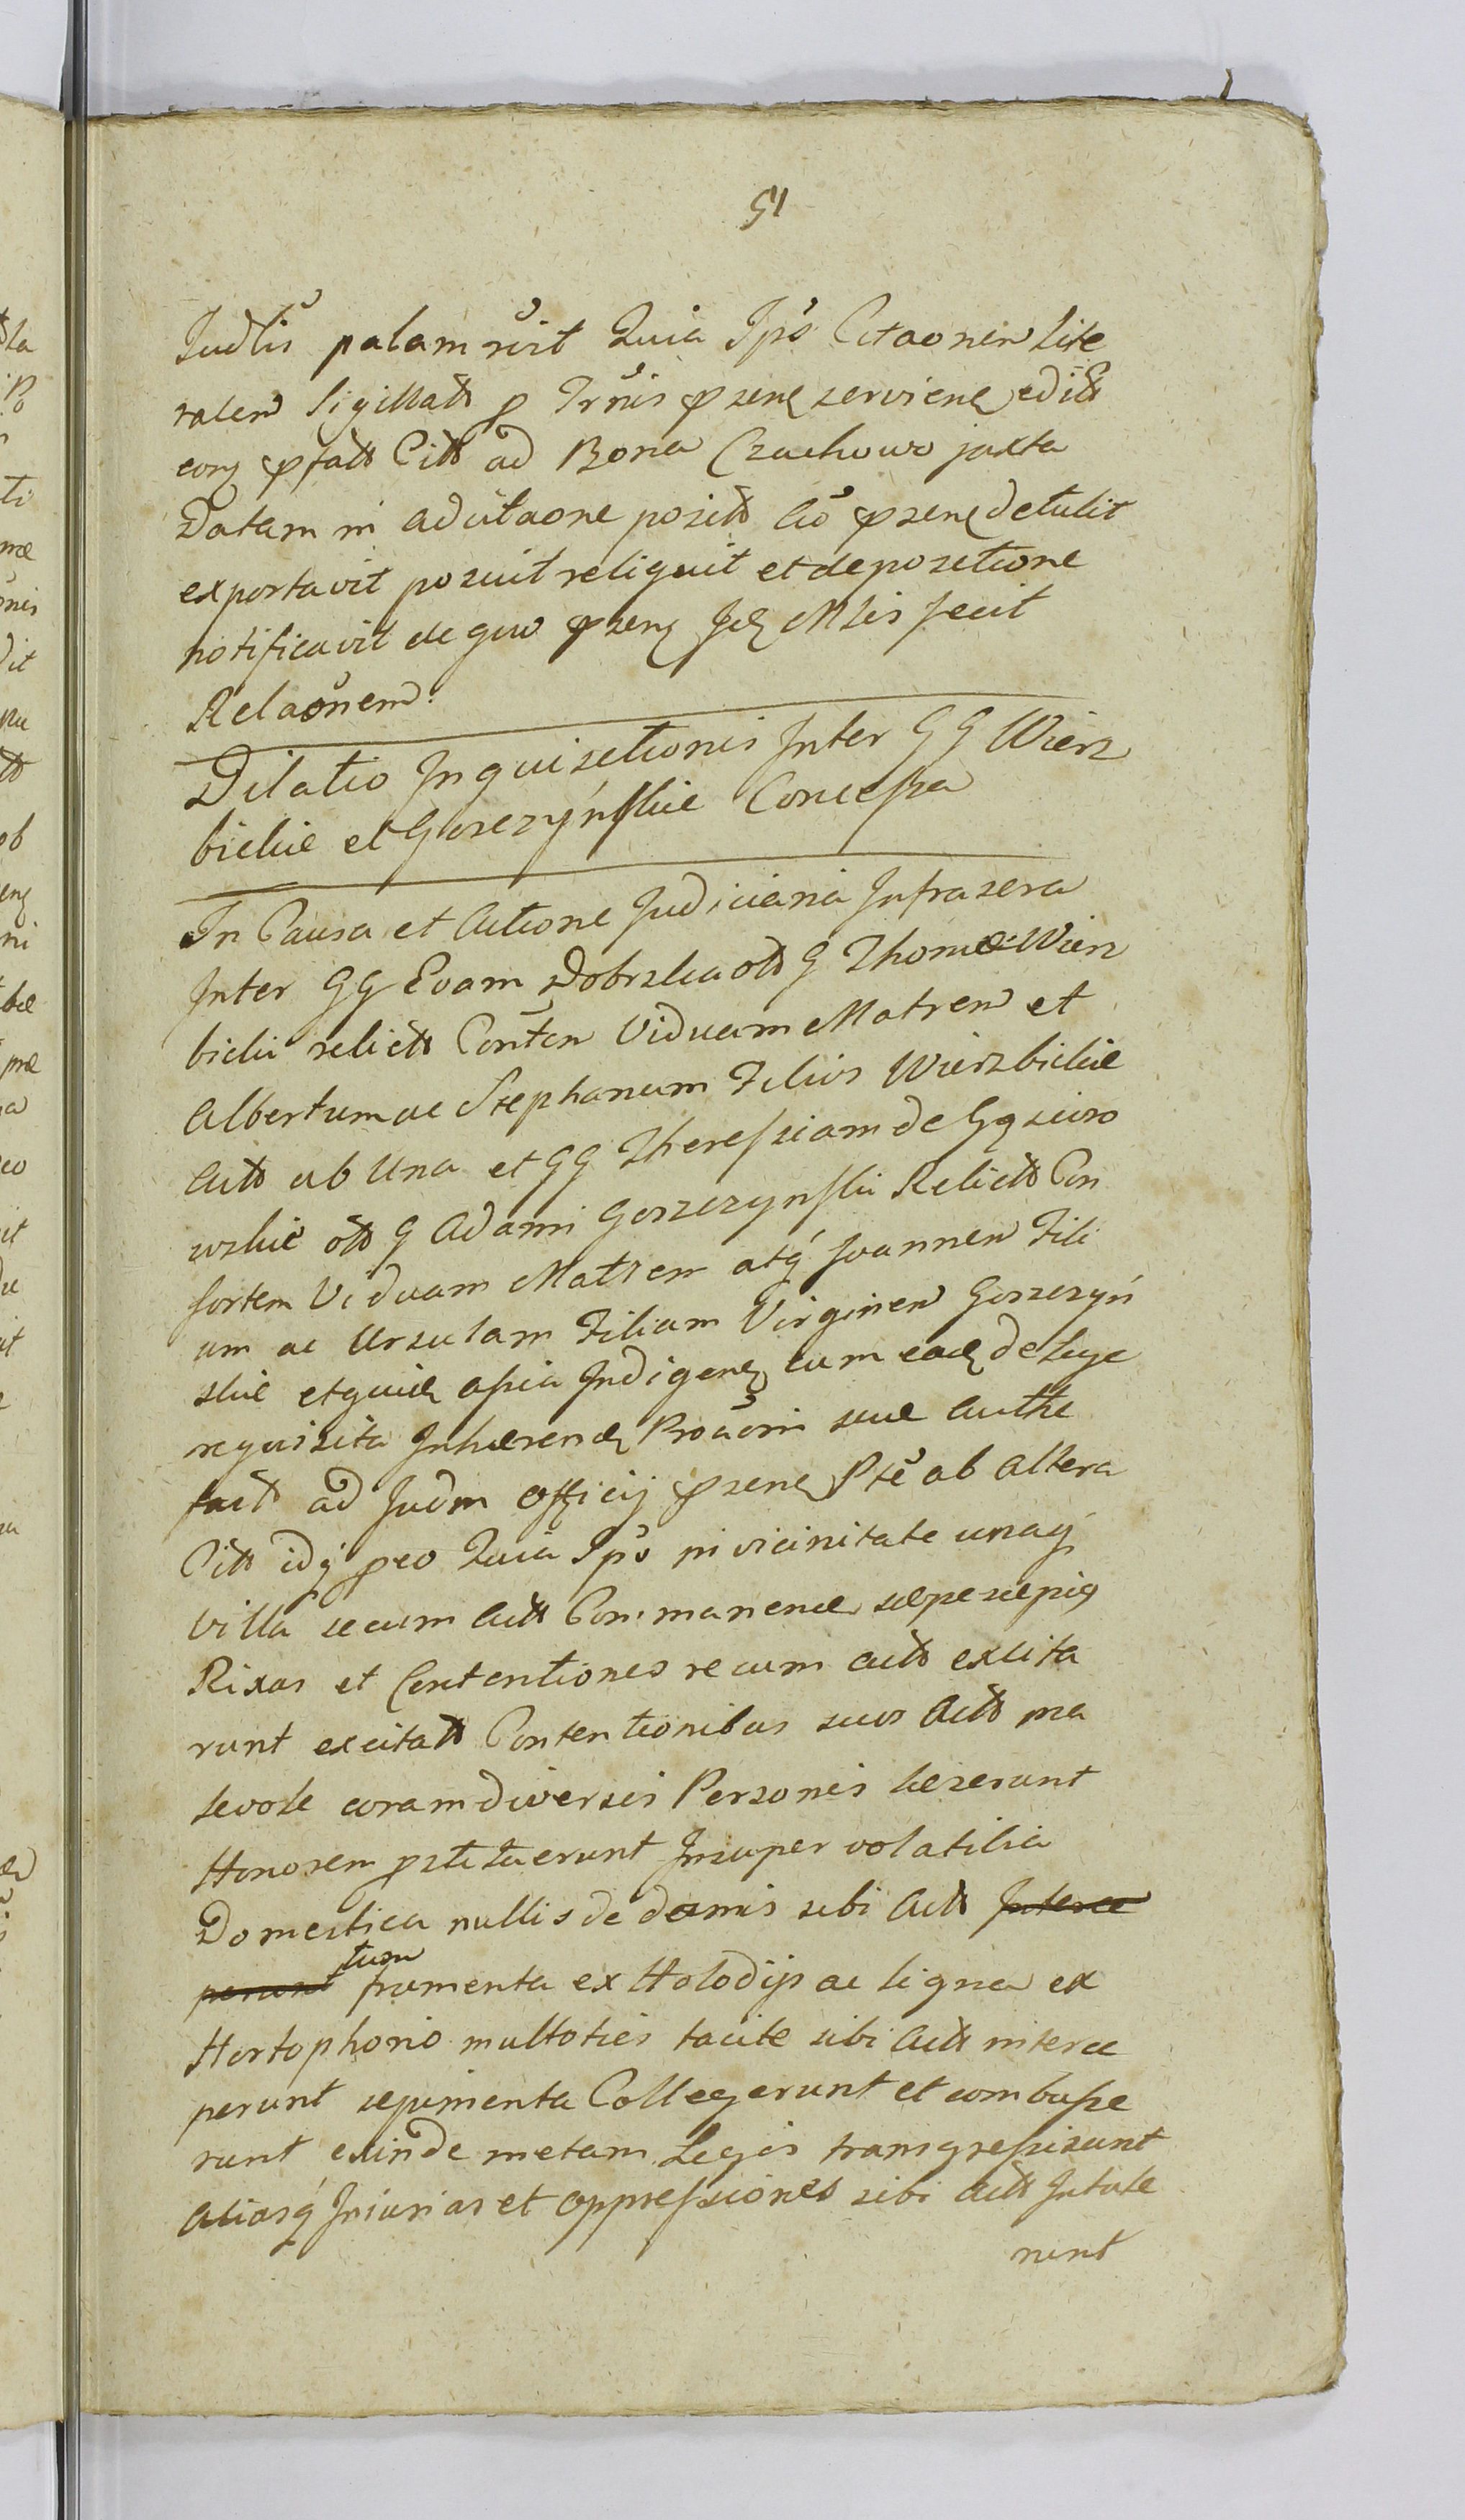 51
Judlis palam rcit Quia Ipõ Citaonem lite
ralem Sigillatt p Trñis pzenę servienę edict
corą pfatt Citt ad Bona Czachowo juxta
Datam in adcitaone posita Aõ pzenę detulit
exportavit posuit reliquit et depozitione
notificavit de quo pzenę Jcę Mtis fecit
Relaonem.
Dilatio Inquizitionis Inter GG Wierz
bickie et Goszczyńskie Concessa
In Causa et Actione Judiciaria Infrazera
Inter GG Evam Dobrzka ott G Thomæ Wierz
bicki relictt Conten Viduam Matrem et
Albertum ac Stephanum Filios Wierzbickie
Actt ab Una et GG Theressiam de
wzkie ott G Adami Goszczynski Relictt Con
sortem Viduam Matrem atq Joannem Fili
um ac Ursulam Filiam Virginem Goszczyń
skie etquidę Indigenę cum eadę de lege
requisita Inhærendę Procõri suæ Authe
tact ad Judm Officij pzenę Pte ab altera
Citt idq peo Quia Ipõ in vicinitate unaq
Villa secum Actt Commanendæ sæpe sæpiq
Rixas et Contentiones secum actt excita
runt excitatt Contentionibus suos Actt ma
levole coram diversis Personis læzerunt
Honorem pztituerunt Insuper volatilia
Domestica nullis de damis sibi Actt Interce
perunt tum frumenta ex Stodijs ac ligna ex
Hortophorio multoties tacite sibi Actt interce
perunt sepimenta Collegerunt et combusse
runt exinde metam Legis transgressi sunt
aliasq Iniurias et oppressiones sibi actt Intule
runt